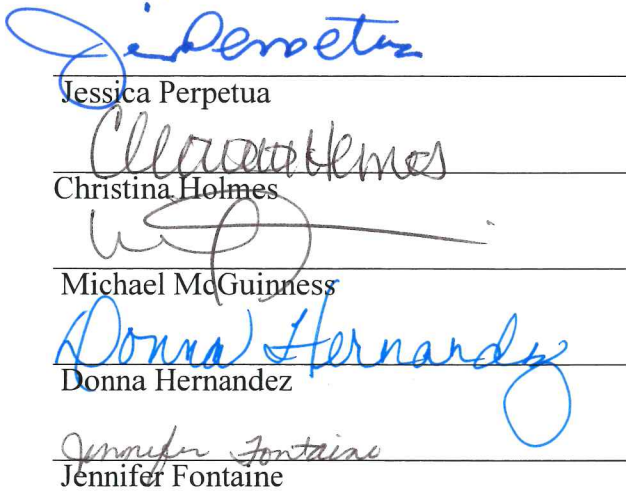 Jessica Perpetua
Christina Holmes
Michael McGuinness
Donna Hernandez
Donna Hernandez
Jennifer Fontaine
Jennifer Fontaine